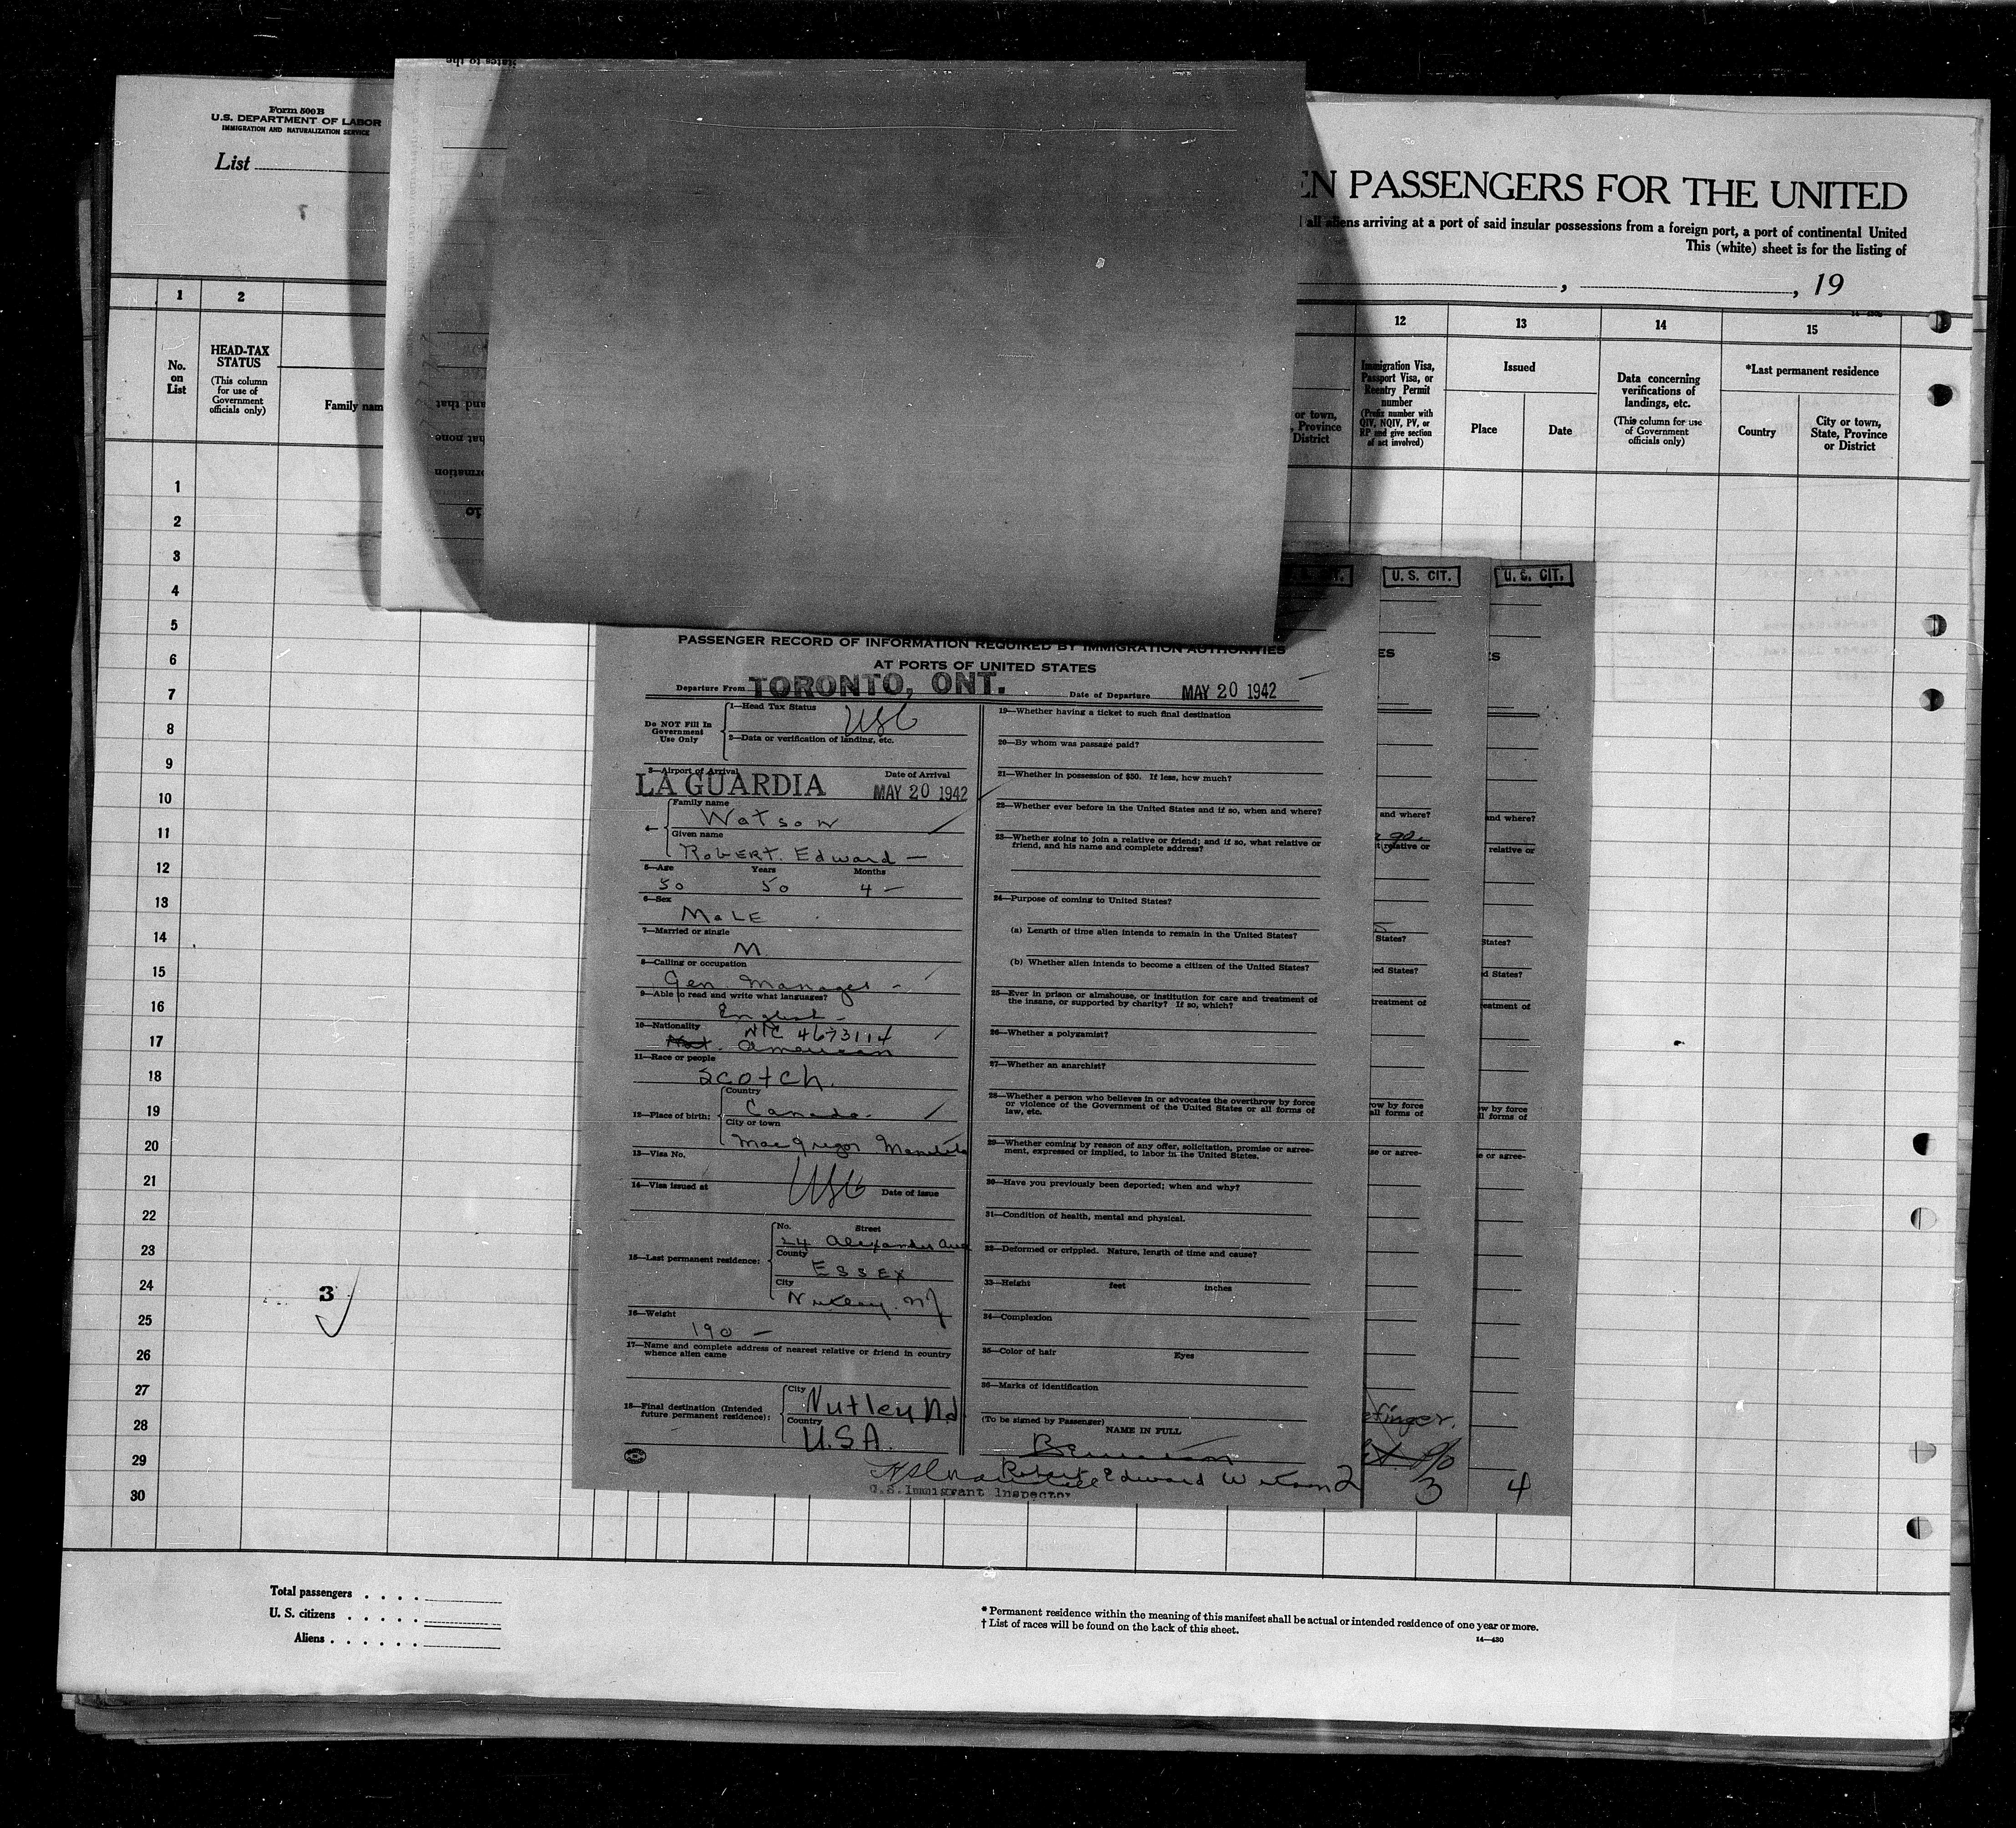 Form 500 B
U.S. DEPARTMENT OF LABOR
IMMIGRATION AND NATURALIZATION SERVICE
List
EN PASSENGERS FOR THE UNITED
all aliens arriving at a port of said insular possessions from a foreign port, a port of continental United
This (white) sheet is for the listing of
, , 19
1 2 12 13 14 15
No. on List
HEAD-TAX STATUS
(This column for use of Government officials only)
Family nam
or town, Province District
Immigration Visa, Passport Visa, or Reentry Permit number
(Prefix number with QIV, NQIV, PV, or RP and give section of act involved)
Issued
Place Date
Data concerning verifications of landings, etc.
(This column for use of Government officials only)
*Last permanent residence
Country
City or town, State, Province or District
1
2
3
4
5
6
7
8
9
10
11
12
13
14
15
16
17
18
19
20
21
22
23
24
25
26
27
28
29
30
3
U. S. CIT.
U. S. CIT.
PASSENGER RECORD OF INFORMATION REQUIRED BY IMMIGRATION AUTHORITIES
AT PORTS OF UNITED STATES
Departure From TORONTO, ONT. Date of Departure MAY 20 1942
Do NOT Fill In Government Use Only
1—Head Tax Status USC
2—Data or verification of landing, etc.
3—Airport of Arrival Date of Arrival
LA GUARDIA MAY 20 1942
Family name
Watson
Given name
Robert. Edward —
5—Age Years Months
50 50 4 —
6—Sex
MaLE
7—Married or single
M
8—Calling or occupation
Gen Manager —
9—Able to read and write what languages?
English —
10—Nationality NTC 4673114
Nat. American
11—Race or people
Scotch.
12—Place of birth:
Country
Canada.
City or town
MacGregor Manitoba
13—Visa No.
USC
14—Visa issued at Date of issue
15—Last permanent residence:
No. Street
24 Alexander Ave
County
ESSEX
City
Nutley. NJ
16—Weight
190 —
17—Name and complete address of nearest relative or friend in country
whence alien came
18—Final destination (Intended
future permanent residence):
City
Nutley NJ
Country
U.S.A.
19—Whether having a ticket to such final destination
20—By whom was passage paid?
21—Whether in possession of $50. If less, how much?
22—Whether ever before in the United States and if so, when and where?
23—Whether going to join a relative or friend; and if so, what relative or
friend, and his name and complete address?
24—Purpose of coming to United States?
(a) Length of time alien intends to remain in the United States?
(b) Whether alien intends to become a citizen of the United States?
25—Ever in prison or almshouse, or institution for care and treatment of
the insane, or supported by charity? If so, which?
26—Whether a polygamist?
27—Whether an anarchist?
28—Whether a person who believes in or advocates the overthrow by force
or violence of the Government of the United States or all forms of
law, etc.
29—Whether coming by reason of any offer, solicitation, promise or agree-
ment, expressed or implied, to labor in the United States.
30—Have you previously been deported; when and why?
31—Condition of health, mental and physical.
32—Deformed or crippled. Nature, length of time and cause?
33—Height feet inches
34—Complexion
35—Color of hair Eyes
36—Marks of identification
(To be signed by Passenger)
NAME IN FULL
Robert Edward Watson 2
U.S. Immigrant Inspector
and where?
relative or
States?
ted States?
treatment of
row by force
all forms of
se or agree-
3
and where?
relative or
States?
d States?
eatment of
w by force
ll forms of
e or agree-
4
Total passengers . . . .
U. S. citizens . . . . .
Aliens . . . . . .
* Permanent residence within the meaning of this manifest shall be actual or intended residence of one year or more.
† List of races will be found on the back of this sheet.
14—430